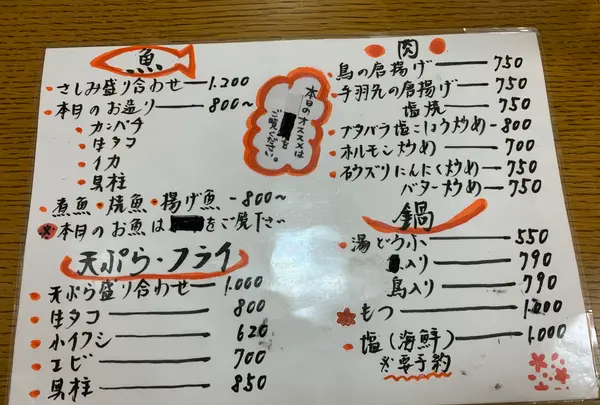 魚
・さしみ盛り合わせ―1,200
・本日のお造り―800～
・カンパチ
・生タコ
・イカ
・貝柱
煮魚・焼魚・揚げ魚-800～
本日のお魚は をご覧下さい
本日のオススメは
を
ご覧ください。
天ぷら・フライ
・天ぷら盛り合わせ―1,000
・生タコ―800
・小イワシ―620
・エビ―700
・貝柱―850
・肉・
・鳥の唐揚げ―750
・手羽先の唐揚げ―750
塩焼―750
・ブタバラ塩こしょう炒め-800
・ホルモン炒め―700
・砂ズリにんにく炒め―750
バター炒め―750
鍋
・湯どうふ―550
入り―790
鳥入り―790
もつ―
・塩(海鮮)―1,000
※要予約